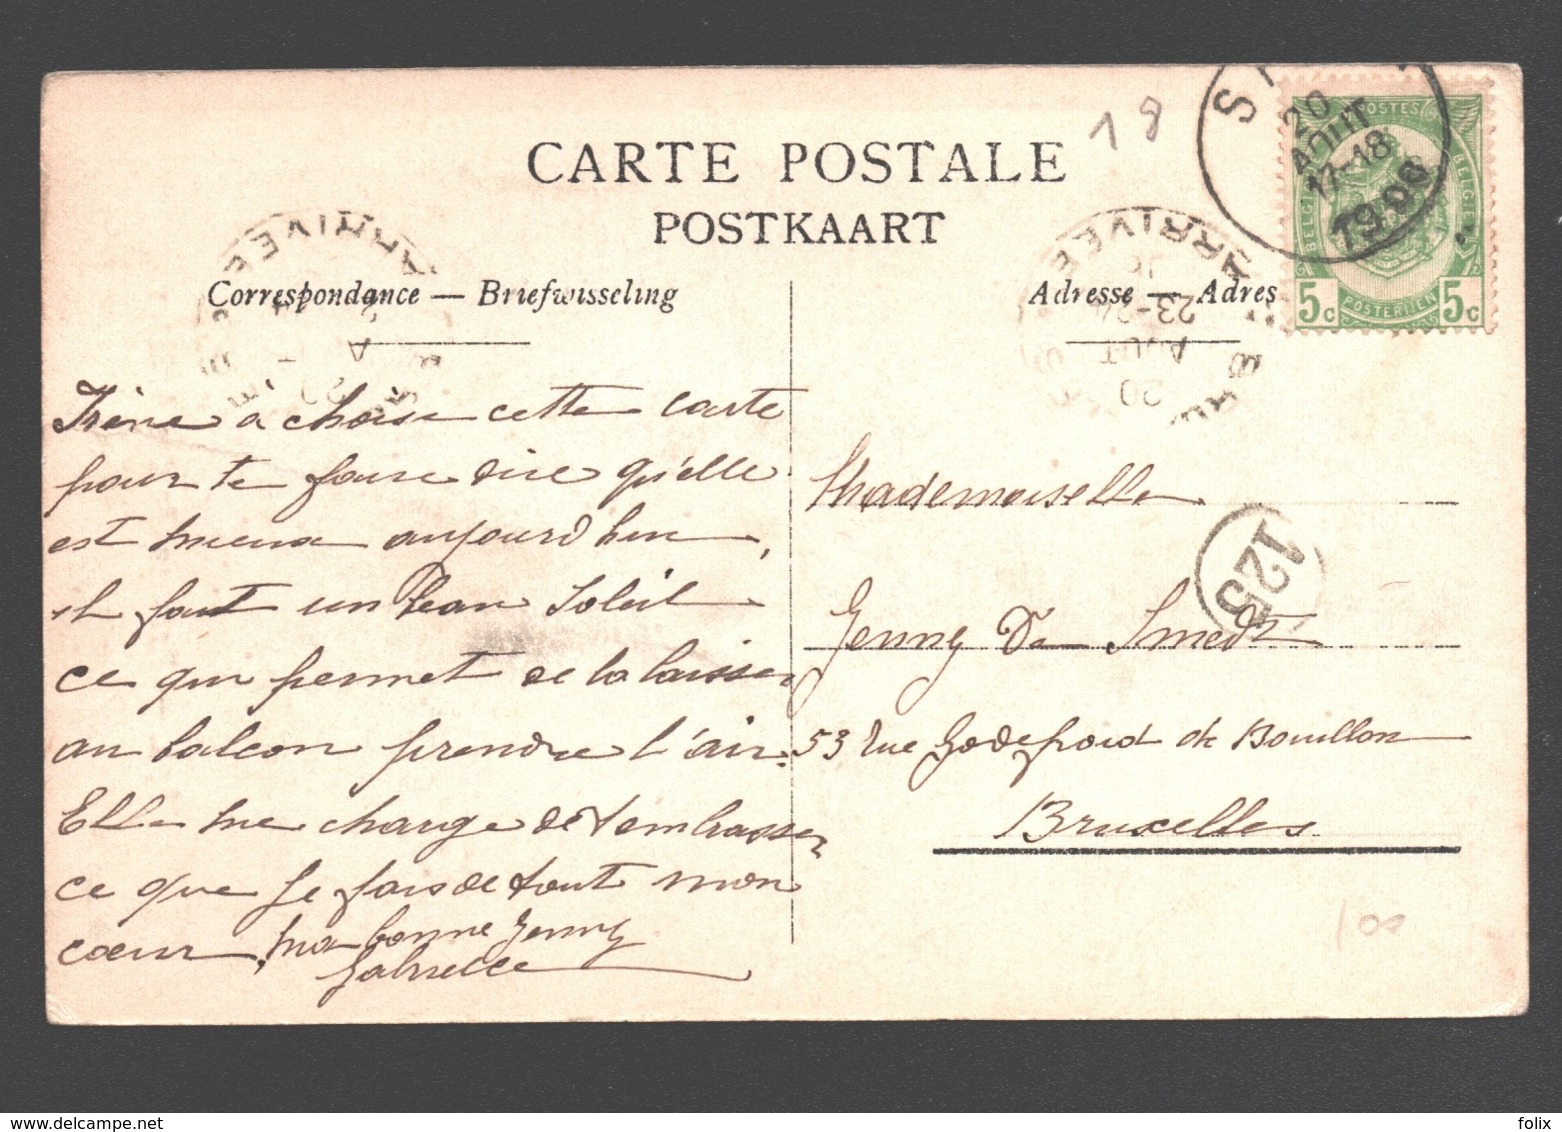 18
CARTE POSTALE
POSTKAART
Correspondance — Briefwisseling
Adresse — Adres
S
20
AOUT
17-18
1906
POSTES
BELGIQUE
BELGIE
5c
POSTERIJEN
5c
ARRIVEE
ARRIVEE
23-24
AOUT
20
Irène à choisi cette carte
pour te faire dire qu'elle
est mieux aujourd'hui,
il fait un beau Soleil
ce qui permet de la laisser
au balcon prendre l'air.
Elle me charge de t'embrasser
ce que je fais de tout mon
cœur, ma bonne Jenny
Gabrielle
Mademoiselle
Jenny De Smedt
53 rue Godefroid de Bouillon
Bruxelles
125
100
folix
delcampe.net